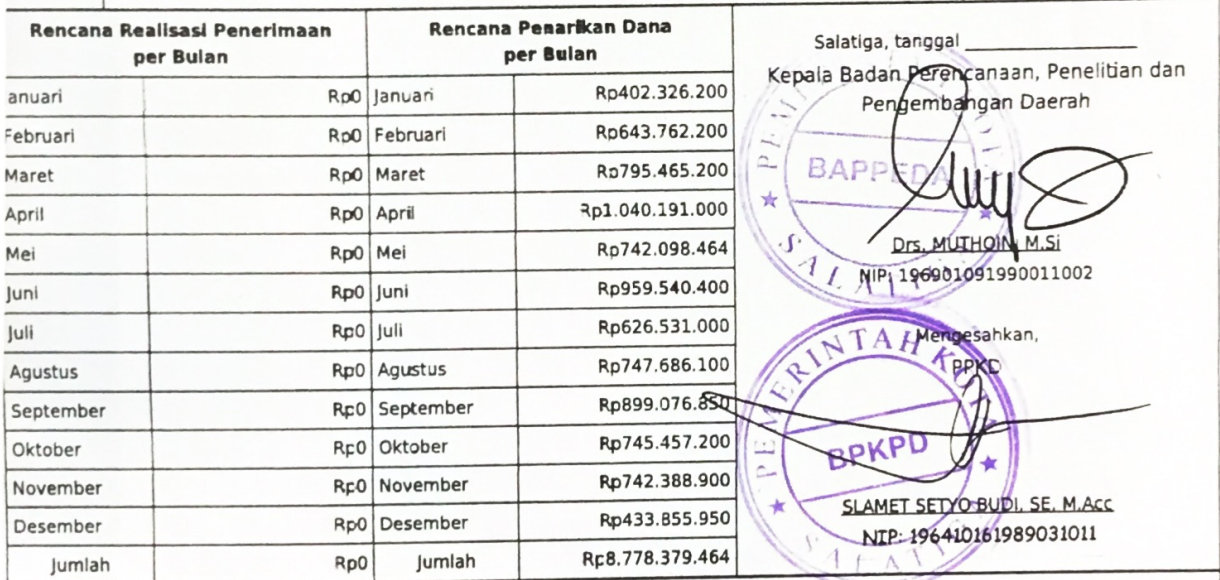 Rencana Realisasi Penerimaan per Bulan Rencana Penarikan Dana per Bulan
anuari Rp0 Januari Rp402.326.200
Februari Rp0 Februari Rp643.762.200
Maret Rp0 Maret Rp795.465.200
April Rp0 April Rp1.040.191.000
Mei Rp0 Mei Rp742.098.464
Juni Rp0 Juni Rp959.540.400
Juli Rp0 Juli Rp626.531.000
Agustus Rp0 Agustus Rp747.686.100
September Rp0 September Rp899.076.850
Oktober Rp0 Oktober Rp745.457.200
November Rp0 November Rp742.388.900
Desember Rp0 Desember Rp433.855.950
Jumlah Rp0 Jumlah Rp8.778.379.464
Salatiga, tanggal
Kepala Badan Perencanaan, Penelitian dan
Pengembangan Daerah
BAPPEDA
SALATIGA
Drs. MUTHOIN, M.Si
NIP: 196901091990011002
Mengesahkan,
PPKD
PEMERINTAH KOTA
BPKPD
SALATIGA
SLAMET SETYO BUDI, SE, M.Acc
NIP: 196410161989031011